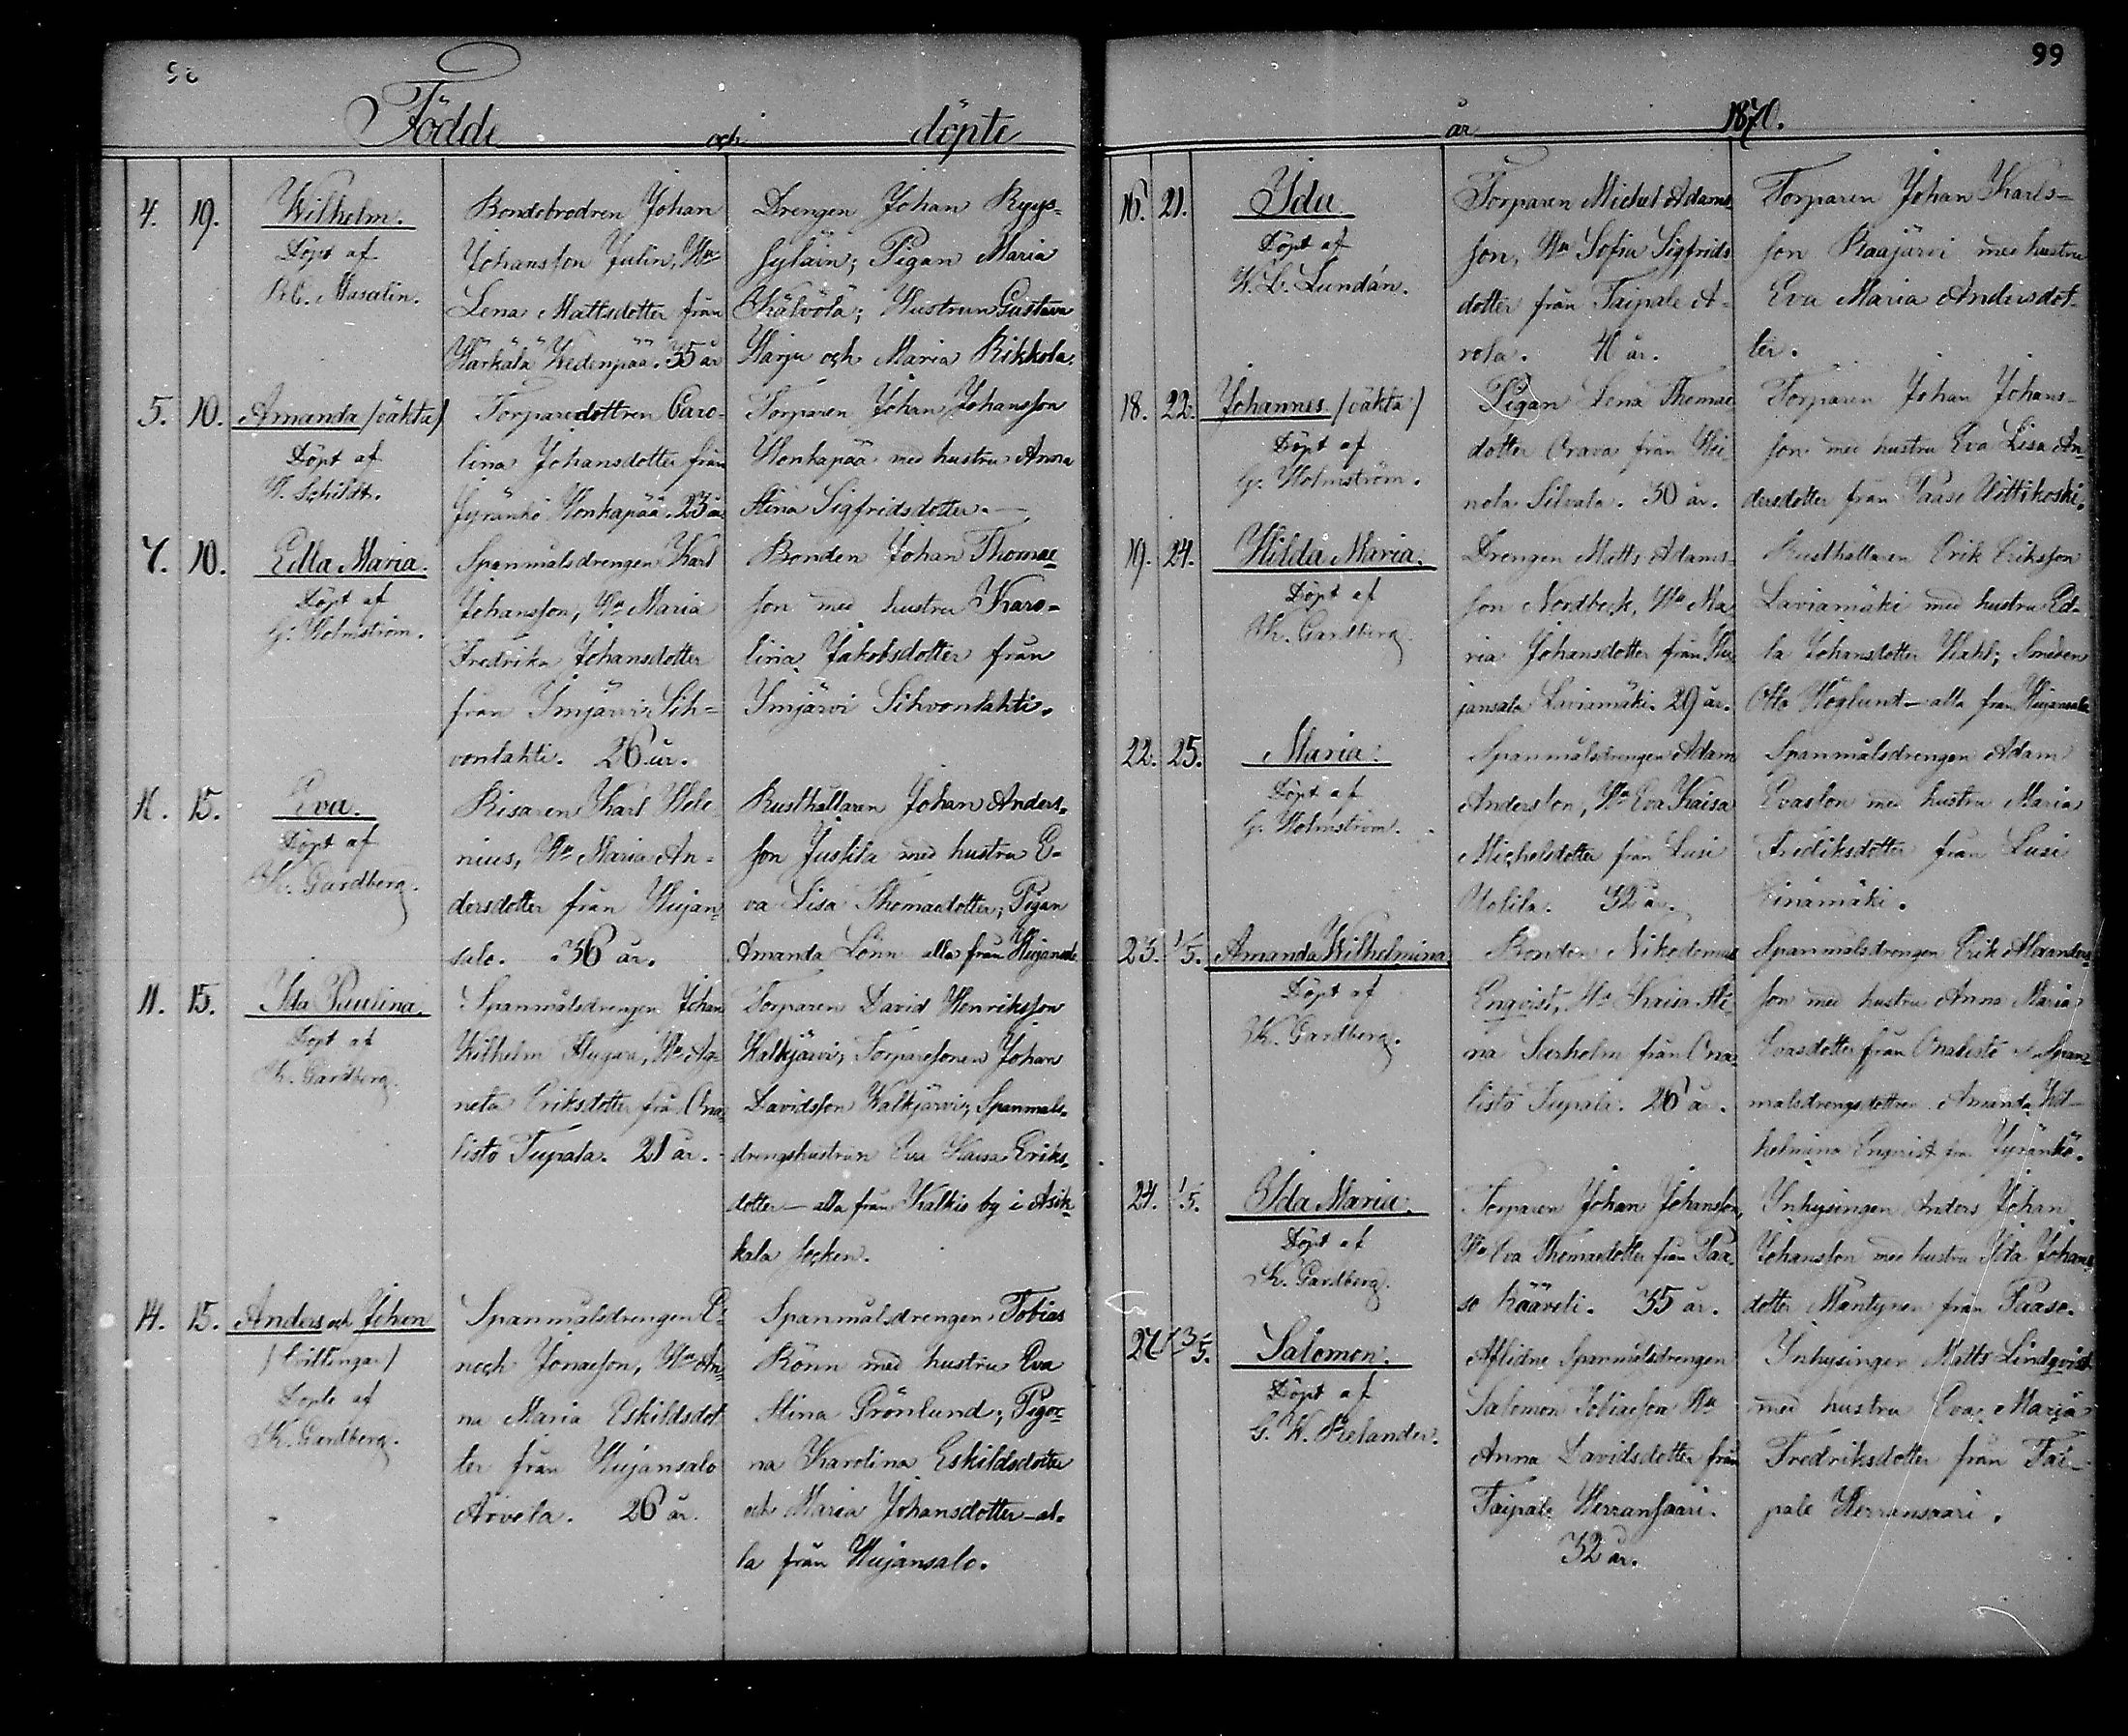 98
Födde och döpte
4. 19. Wilhelm.
Döpt af
Bondebrodren Johan
Johansson Julin, Hu
Lena Mattsdotter från
Wärkälä Wedenpää. 35 år
Drengen Johan Ryys-
syläin; Pigan Maria
Kälvölä; Hustrun Gustava
Harju och Maria Rikkola.
5. 10. Amanda /oäkta/
Döpt af
W. Schildt.
Torparedottren Caro-
lina Johansdotter från
Jyränkö Honkapää. 23 år
Torparen Johan Johansson
Honkapää med hustru Anna
Stina Sigfridsdotter.
7. 10. Edla Maria.
Döpt af
G. Holmström.
Spanmålsdrengen Karl
Johansson, Hu Maria
Fredrika Johansdotter
från Imjärvi Sih-
vonlahti. 26 år.
Bonden Johan Thomas-
son med hustru Karo-
lina Jakobsdotter från
Imjärvi Sihvonlahti.
11. 15. Eva.
Döpt af
K. Gardberg.
Risaren Karl Hele-
nius, Hu Maria An-
dersdotter från Hujan-
salo. 36 år.
Rusthållaren Johan Anders-
son Jussila med hustru E-
va Lisa Thomasdotter; Pigan
Amanda Lönn alla från Hujansalo
11. 15. Ida Paulina.
Döpt af
K. Gardberg.
Spanmålsdrengen Johan
Wilhelm Flygare, Hu Ag-
neta Eriksdotter från Ona-
listo Tupala. 21 år.
Torparen David Henriksson
Kalkjärvi, Torparesonen Johan
Davidsson Kalkjärvi, Spanmåls-
drengshustrun Eva Kaisa Eriks-
dotter - alla från Kalkis by i Asik-
kala socken.
14. 15. Anders och Johan
/tvillingar/
Döpte af
K. Gardberg.
Spanmålsdrengen E-
noch Jonasson, Hu An-
na Maria Eskildsdot-
ter från Hujansalo
Arvela. 26 år.
Spanmålsdrengen Tobias
Rönn med hustru Eva
Stina Grönlund; Pigor-
na Karolina Eskildsdotter
och Maria Johansdotter - al-
la från Hujansalo.
99
år 1870.
16. 21. Ida
Döpt af
W. L. Lundán.
Torparen Michel Adams-
son, Hu Sofia Sigfrids
dotter från Taipale A-
rola. 40 år.
Torparen Johan Karls-
son Raajärvi med hustru
Eva Maria Andersdot-
ter.
18. 22. Johannes /oäkta/
Döpt af
G. Holmström.
Pigan Lena Thomas
dotter Orava från Hei-
nola Silvala. 30 år.
Torparen Johan Johans-
son med hustru Eva Lisa An-
dersdotter från Paaso Wittikoski.
19. 24. Hilda Maria.
Döpt af
K. Gardberg.
Drengen Matts Adams-
son Nordbeck, Hu Ma-
ria Johansdotter från Hu-
jansalo Laviamäki. 29 år.
Rusthållaren Erik Eriksson
Laviamäki med hustru Ed-
la Johansdotter Stahl; Smeden
Otto Höglund - alla från Hujansalo
22. 25. Maria.
Döpt af
G. Holmström.
Spanmålsdrengen Adam
Andersson, Hu Eva Kaisa
Michelsdotter från Lusi
Utolila. 32 år.
Spanmålsdrengen Adam
Evasson med hustru Maria
Frediksdotter från Lusi
Einämäki.
23. 1/5. Amanda Wilhelmina
Döpt af
K. Gardberg.
Bonden Nikodemus
Enqvist, Hu Kaisa Sti-
na Serholm från Ona-
listo Tupala. 26 år.
Spanmålsdrengen Erik Alexanders-
son med hustru Anna Maria
Evasdotter från Onalisto Span-
målsdrengsdottren Amanda Wil-
helmina Enqvist från Jyränkö.
24. 1/5. Ida Maria.
Döpt af
K. Gardberg.
Torparen Johan Johansson,
Hu Eva Thomasdotter från Paa-
so Rääveli. 35 år.
Inhysingen Anders Johan
Johansson med hustru Ida Johans-
dotter Mäntynen från Paaso.
27. 3/5. Salomon.
Döpt af
G. W. Relander.
Aflidne Spanmålsdrengen
Salomon Tobiasson Hu
Anna Davidsdotter från
Taipale Herransaari.
32 år.
Inhysingen Matts Lindqvist
med hustru Eva Maria
Fredriksdotter från Tai-
pale Herransaari.